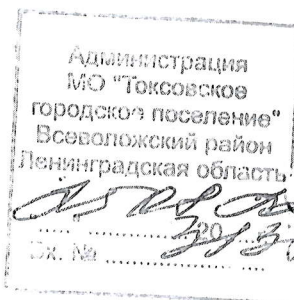 Администрация
МО "Токсовское
городское поселение"
Всеволожский район
Ленинградская область
20
Вх. №